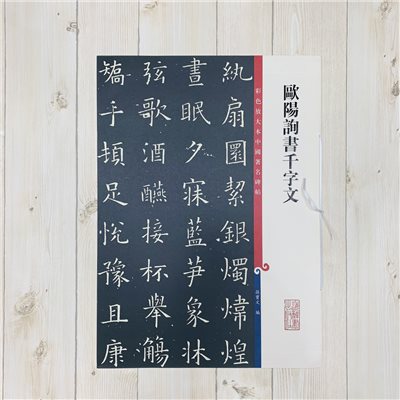 歐陽詢書千字文
彩色放大本中國著名碑帖
孫寶文 編
紈扇圓絜銀燭煒煌
晝眠夕寐藍笋象牀
弦歌酒醼接杯舉觴
矯手頓足悅豫且康